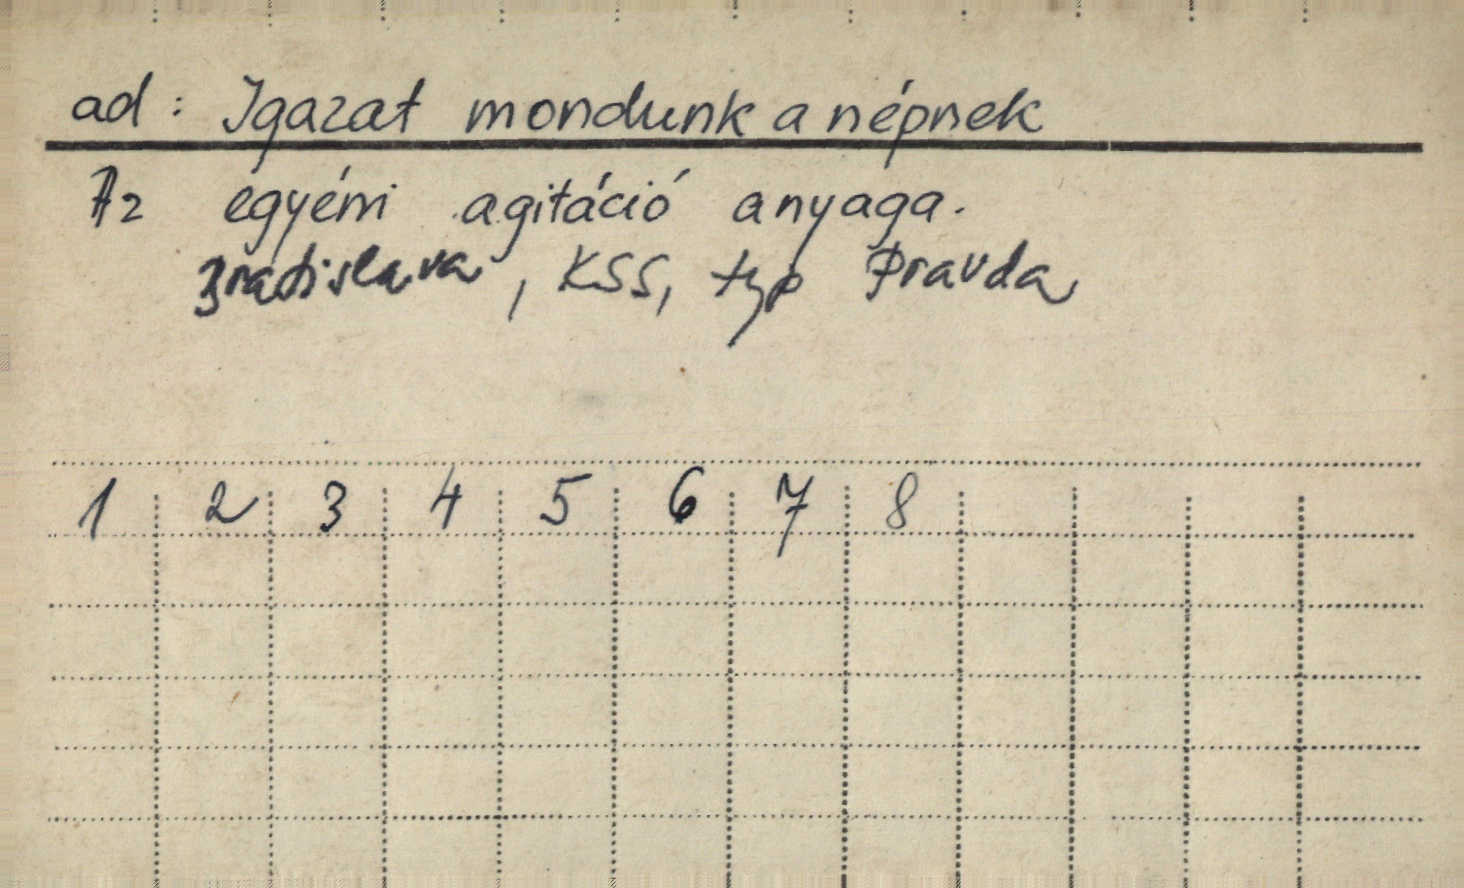 ad: Igazat mondunk a népnek
Az egyéni agitáció anyaga.
Bratislava, KSS, typ Pravda
1 2 3 4 5 6 7 8